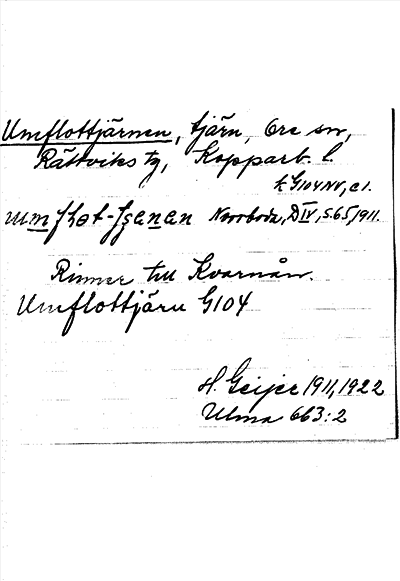 Umflottjärnen, tjärn, Ore sn,
Rättviks tg, Kopparb. l.
k G104NV, c1.
Norrboda, DIV, s.65, 1911.
Rinner till Kvarnån.
Umflottjärn G104
H. Geijer 1911, 1922
Ulma 663:2